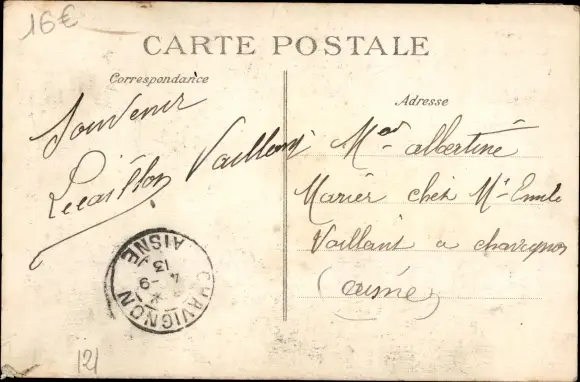 16€
CARTE POSTALE
Correspondance
Souvenir
Lecaillon Vaillant
Adresse
Melle albertine
Marier chez Mr Emile
Vaillant a chavignon
(aisne)
CHAVIGNON
AISNE
4 -9
13
121